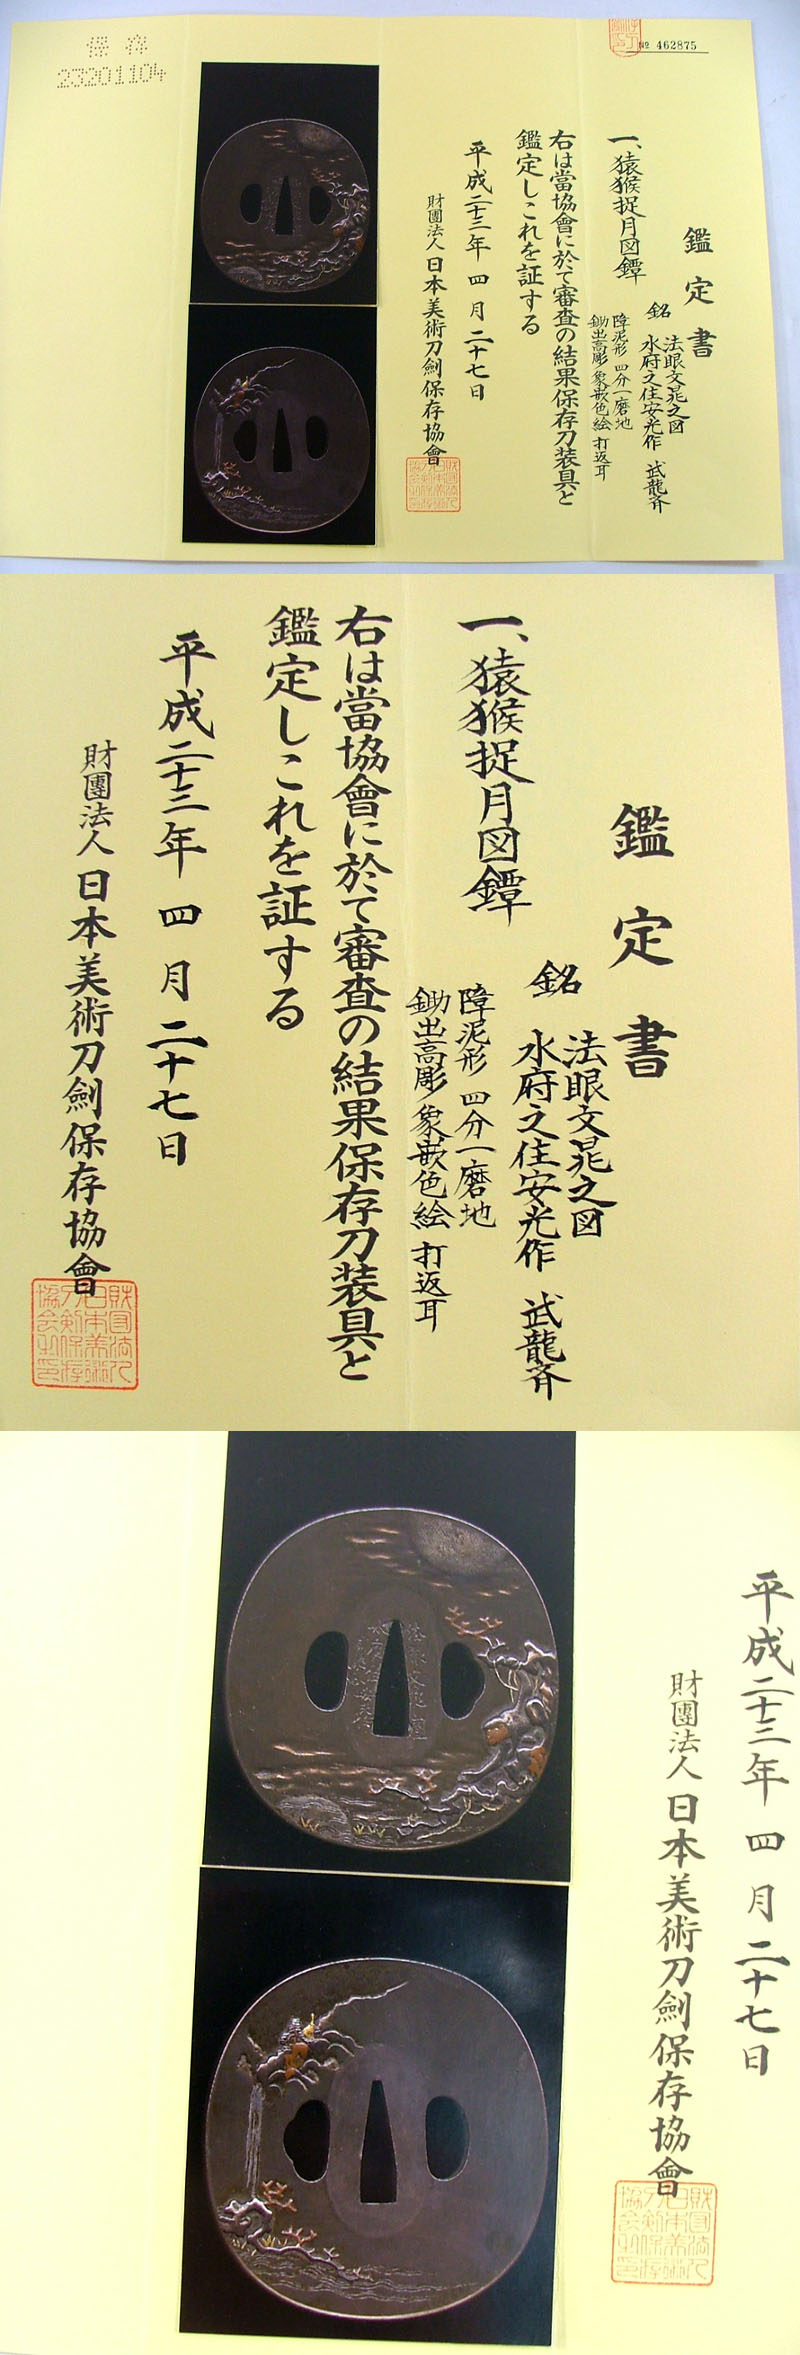 保存
23201104
№ 462875
鑑定書
一、猿猴捉月図鐔
銘 法眼文晁之図
水府之住安光作 武龍斉
障泥形 四分一磨地
鋤出高彫 象嵌色絵 打返耳
右は當協會に於て審査の結果保存刀装具と
鑑定しこれを証する
平成二十三年 四月二十七日
財團法人 日本美術刀劍保存協會
鑑定書
一、猿猴捉月図鐔
銘 法眼文晁之図
水府之住安光作 武龍斉
障泥形 四分一磨地
鋤出高彫 象嵌色絵 打返耳
右は當協會に於て審査の結果保存刀装具と
鑑定しこれを証する
平成二十三年 四月二十七日
財團法人 日本美術刀劍保存協會
平成二十三年 四月二十七日
財團法人 日本美術刀劍保存協會